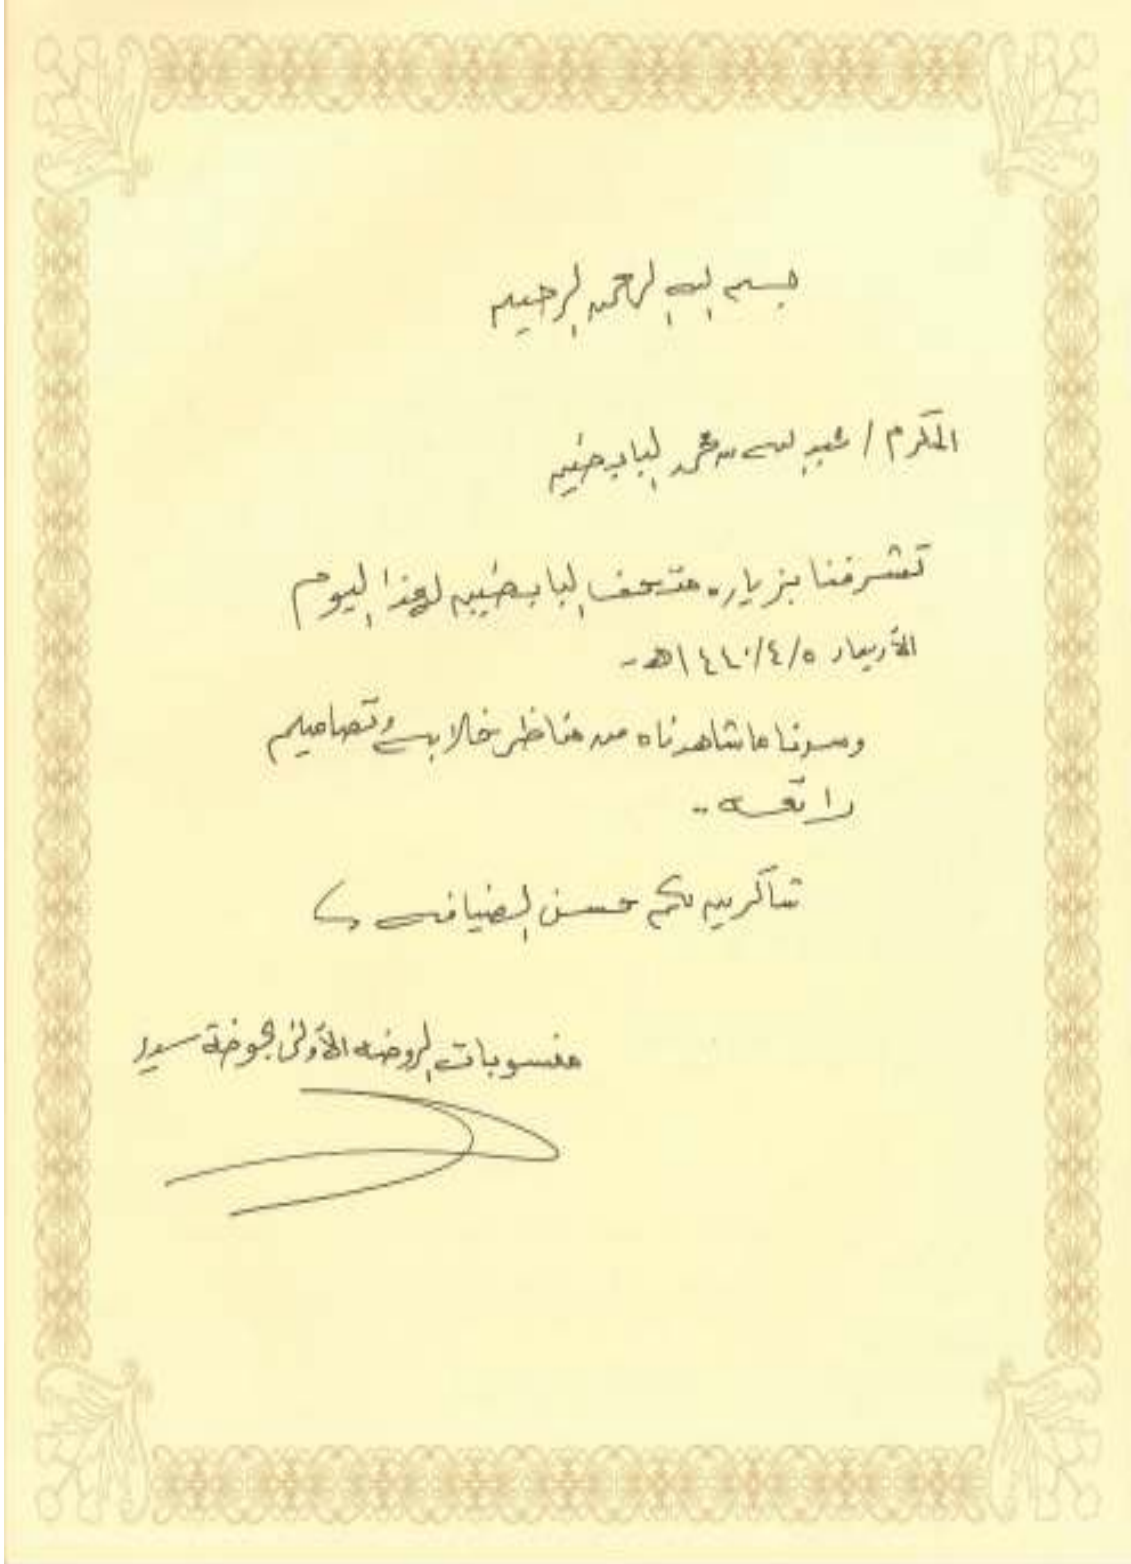 بسم الله الرحمن الرحيم
المكرم / عبد الله بن محمد البابطين
تشرفنا بزياره متحف البابطين لهذا اليوم
الأربعاء ١٤٤٠/٤/٥هـ -
وسرنا ما شاهدناه من مناظر خلابه وتصاميم
رائعه ..
شاكرين لكم حسن الضيافه
منسوبات الروضه الأولى بحوطة سدير